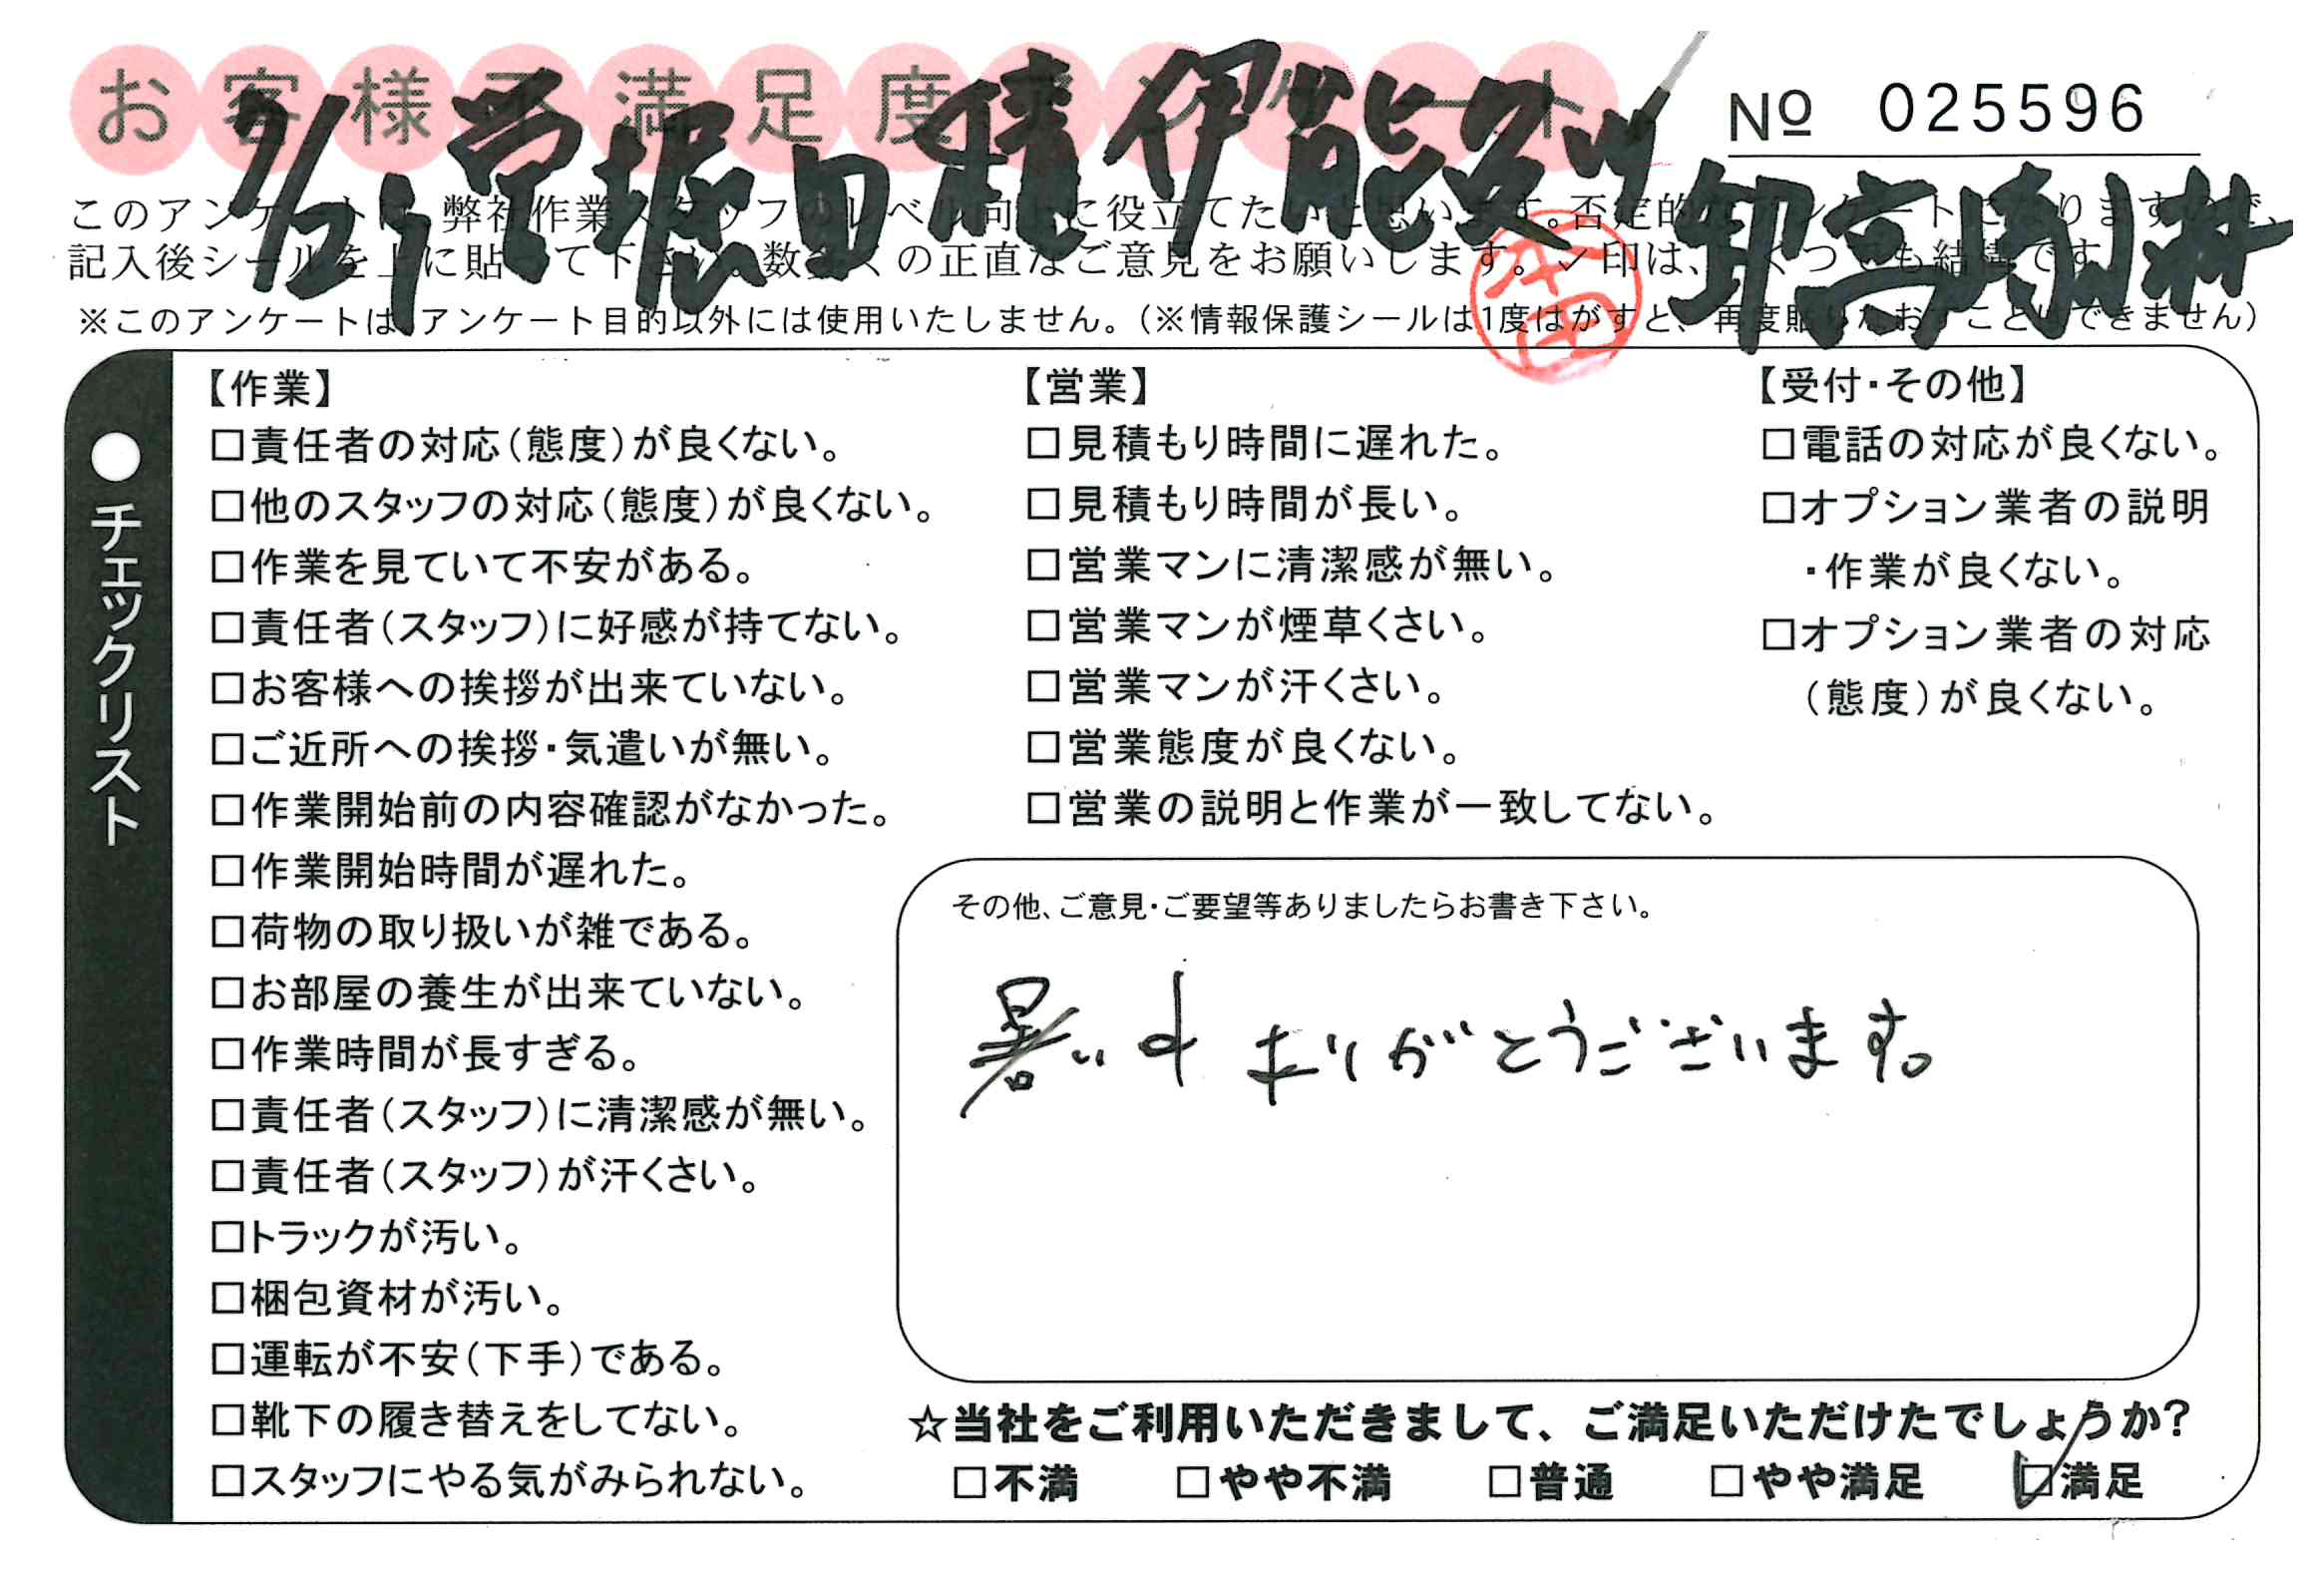 お客様不満足度アンケート
No 025596
7/21 営堀田 積伊能 卸高崎小林
このアンケートは、弊社作業スタッフのレベル向上に役立てたいと思います。否定的なアンケートになりますので、
記入後シールを上に貼って下さい。数多くの正直なご意見をお願いします。✓印は、いくつでも結構です。
※このアンケートは、アンケート目的以外には使用いたしません。(※情報保護シールは1度はがすと、再度貼りなおすことはできません)
●チェックリスト
【作業】
□責任者の対応(態度)が良くない。
□他のスタッフの対応(態度)が良くない。
□作業を見ていて不安がある。
□責任者(スタッフ)に好感が持てない。
□お客様への挨拶が出来ていない。
□ご近所への挨拶・気遣いが無い。
□作業開始前の内容確認がなかった。
□作業開始時間が遅れた。
□荷物の取り扱いが雑である。
□お部屋の養生が出来ていない。
□作業時間が長すぎる。
□責任者(スタッフ)に清潔感が無い。
□責任者(スタッフ)が汗くさい。
□トラックが汚い。
□梱包資材が汚い。
□運転が不安(下手)である。
□靴下の履き替えをしてない。
□スタッフにやる気がみられない。
【営業】
□見積もり時間に遅れた。
□見積もり時間が長い。
□営業マンに清潔感が無い。
□営業マンが煙草くさい。
□営業マンが汗くさい。
□営業態度が良くない。
□営業の説明と作業が一致してない。
【受付・その他】
□電話の対応が良くない。
□オプション業者の説明
・作業が良くない。
□オプション業者の対応
(態度)が良くない。
その他、ご意見・ご要望等ありましたらお書き下さい。
暑い中ありがとうございます。
☆当社をご利用いただきまして、ご満足いただけたでしょうか?
□不満 □やや不満 □普通 □やや満足 ☑満足